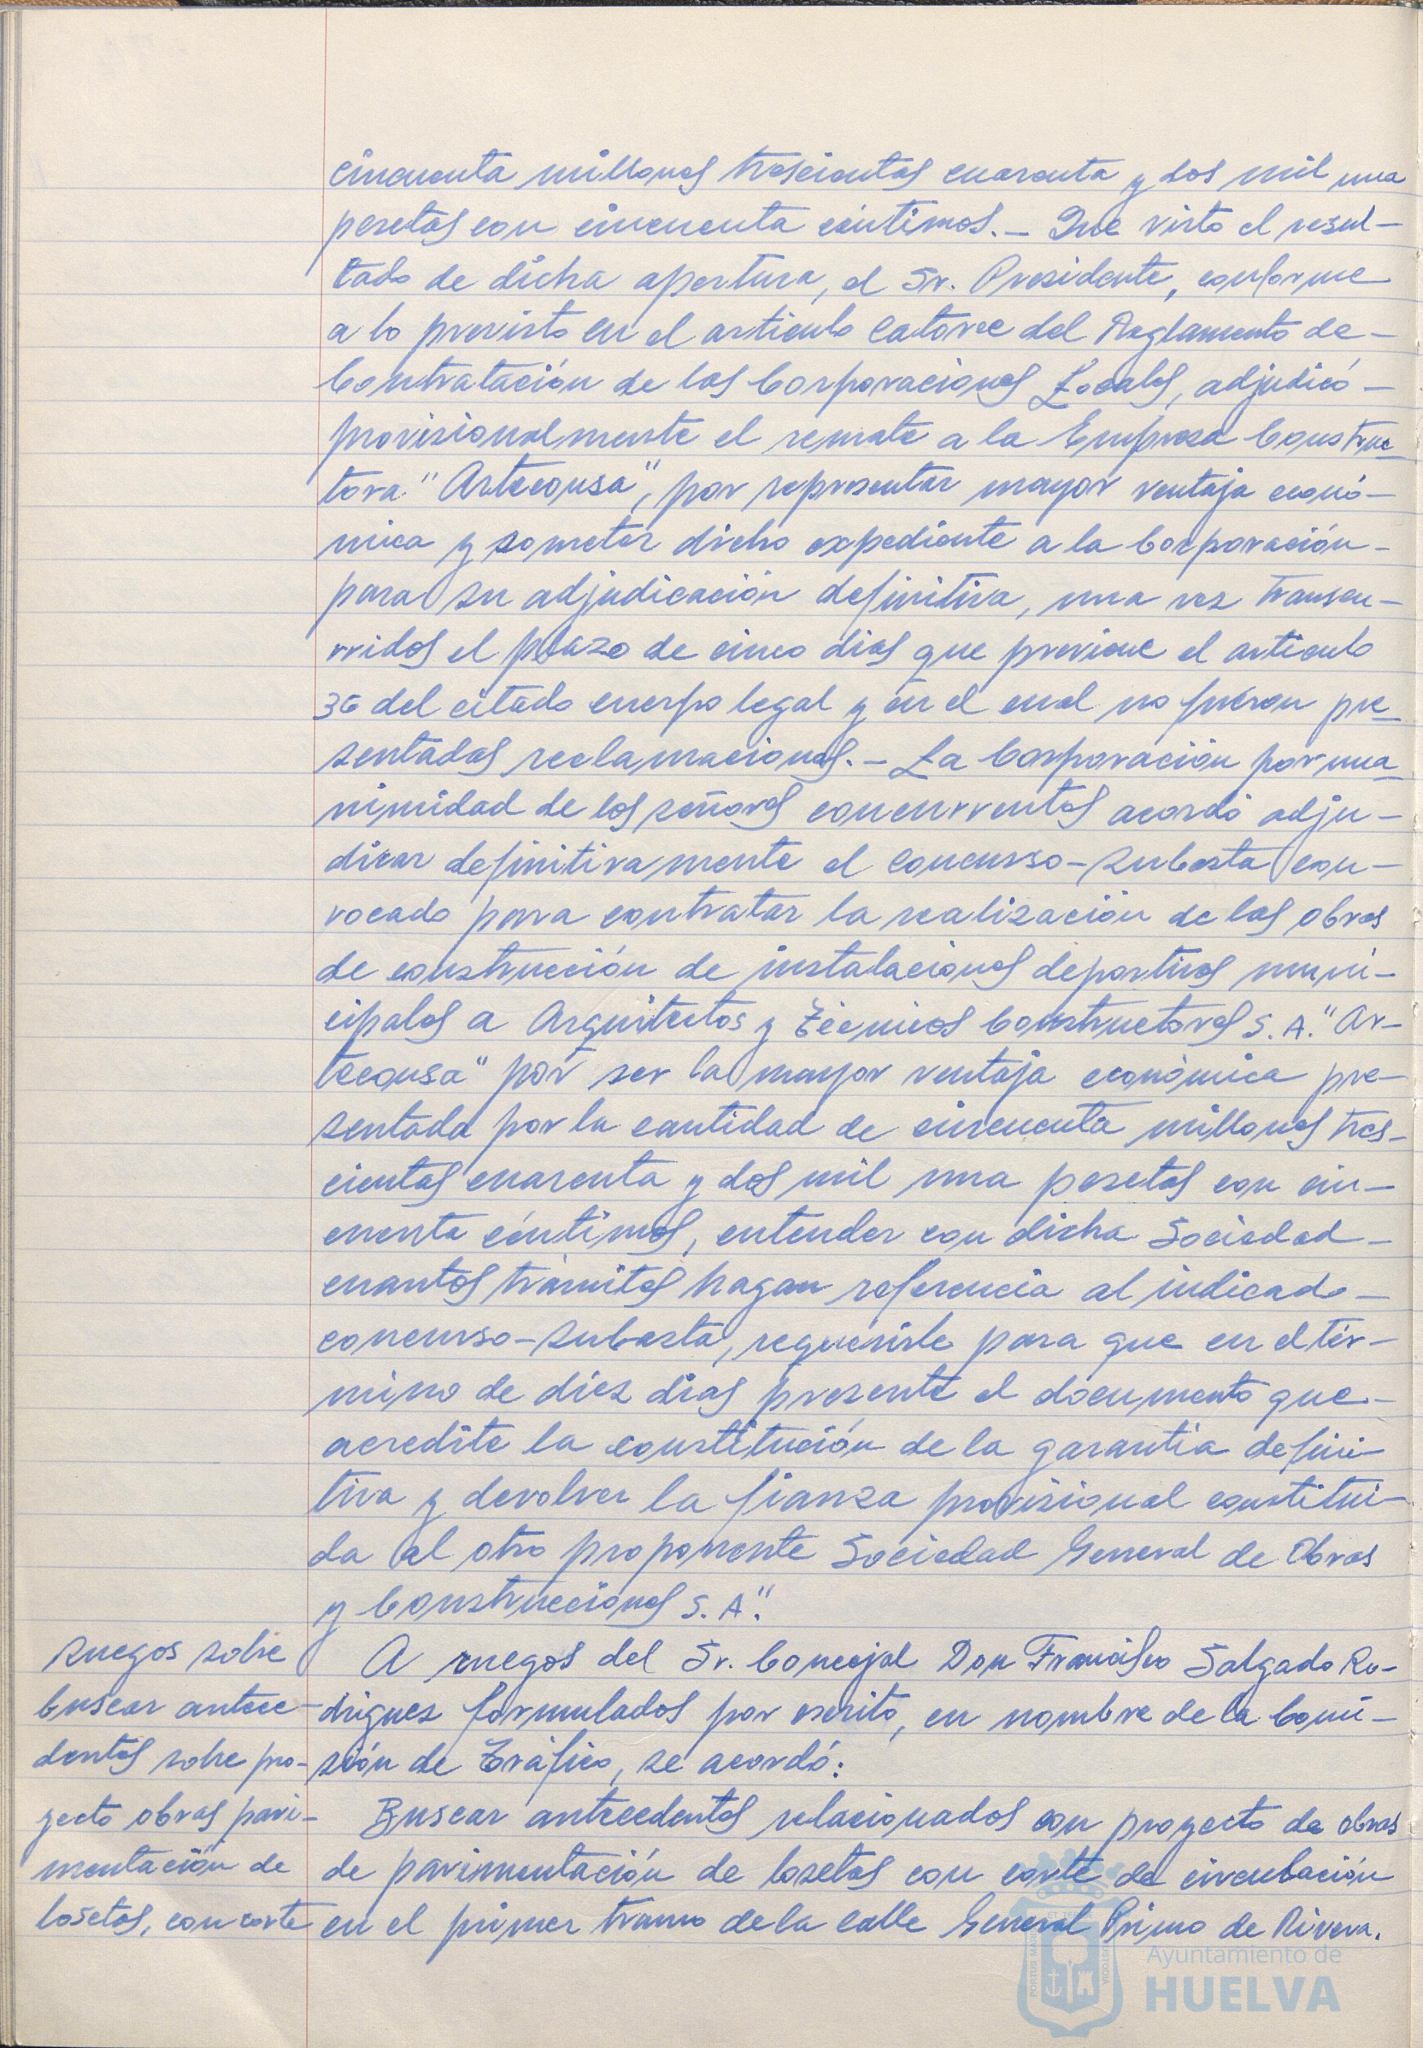 cincuenta millones trescientas cuarenta y dos mil una
pesetas con cincuenta céntimos.- Que visto el resul-
tado de dicha apertura, el Sr. Presidente, conforme
a lo previsto en el articulo catorce del Reglamento de-
Contratación de las Corporaciones Locales, adjudicó-
provisionalmente el remate a la Empresa Construc-
tora "Arteconsa", por representar mayor ventaja econó-
mica y someter dicho expediente a la Corporación-
para su adjudicación definitiva, una vez transcu-
rridos el plazo de cinco dias que previene el articulo
36 del citado cuerpo legal y en el cual no fueron pre-
sentadas reclamaciones.- La Corporación por una-
nimidad de los señores concurrentes acordó adju-
dicar definitivamente el concurso-subasta con-
vocado para contratar la realización de las obras
de construcción de instalaciones deportivas muni-
cipales a Arquitectos y Técnicos Constructores S.A. "Ar-
teconsa" por ser la mayor ventaja económica pre-
sentada por la cantidad de cincuenta millones tres-
cientas cuarenta y dos mil una pesetas con cin-
cuenta céntimos, entender con dicha Sociedad-
cuantos trámites hagan referencia al indicado-
concurso-subasta, requerirle para que en el tér-
mino de diez dias presente el documento que-
acredite la constitución de la garantia defini-
tiva y devolver la fianza provisional constitui-
da al otro proponente Sociedad General de Obras
y Construcciones S.A".
Ruegos sobre
buscar antece-
dentes sobre pro-
yecto obras pavi-
mentación de
losetas, con corte
A ruegos del Sr. Concejal Don Francisco Salgado Ro-
driguez formulados por escrito, en nombre de la Comi-
sión de Tráfico, se acordó:
Buscar antecedentes relacionados con proyecto de obras
de pavimentación de losetas con corte de circulación
en el primer tramo de la calle General Primo de Rivera.
Ayuntamiento de
HUELVA